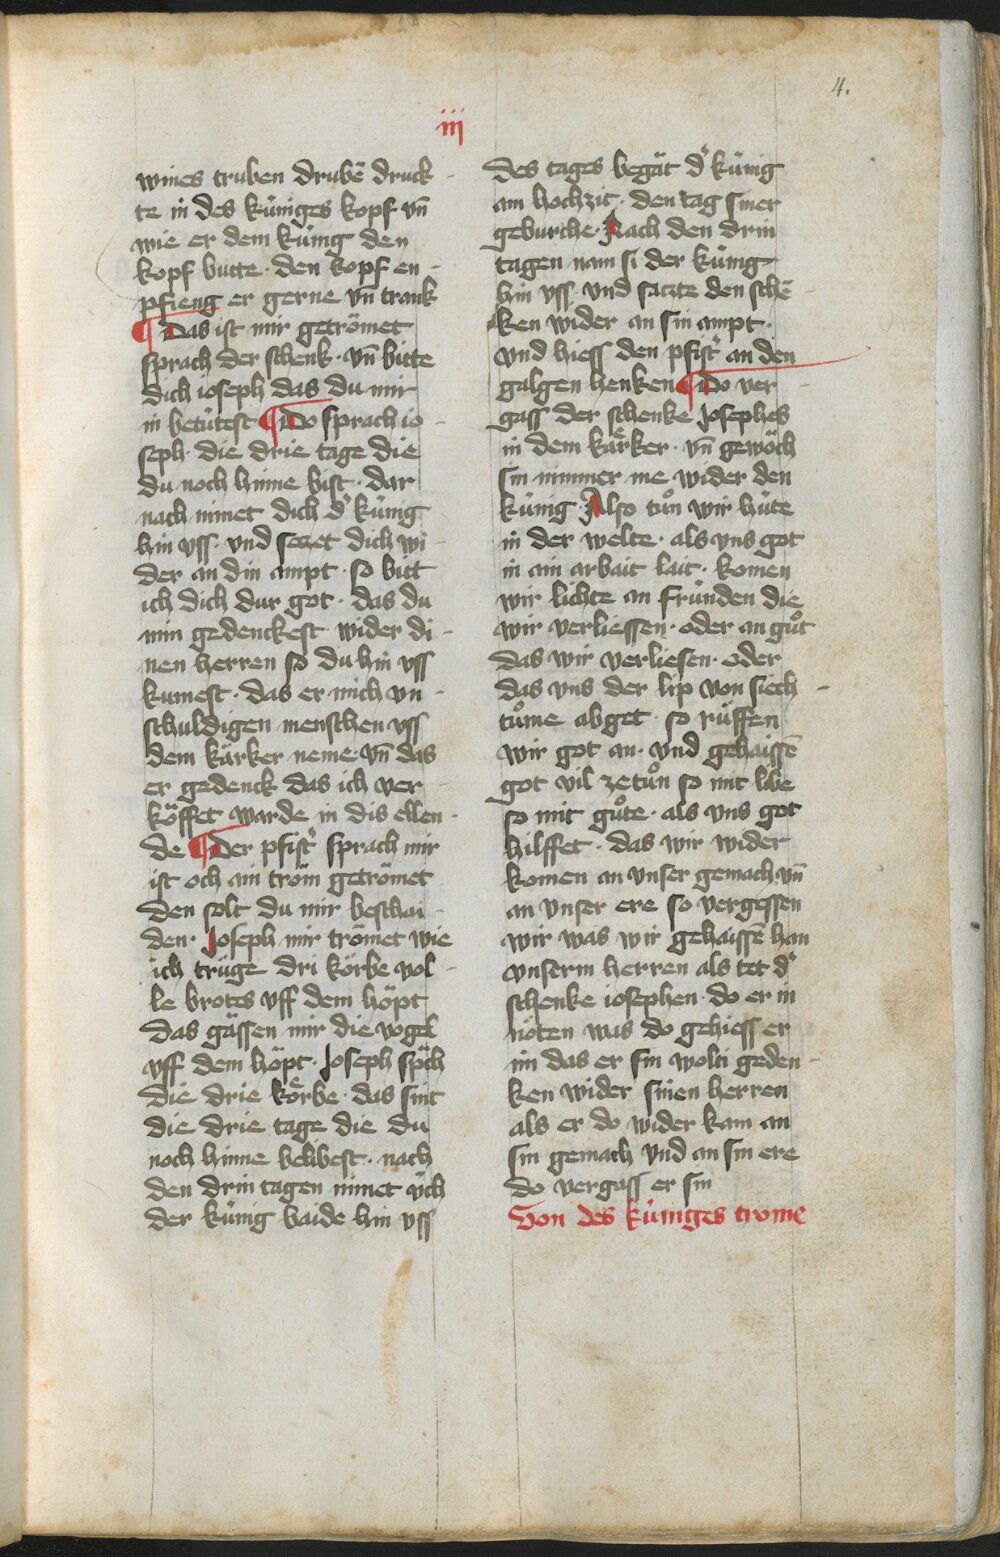 4.
iij
wines truben drubē druck-
te in des küniges kopf vn̄
wie er dem künig den
kopf butte · den kopf en-
pfieng er gerne vn̄ trank
¶ Das ist mir getrömet
sprach der schenk · vn̄ bitte
dich ioseph das du mir
in betütest ¶ Do sprach io-
seph · die drie tage die
du noch hinne bist · dar
nach nimet dich d̾ künig
hin vss · vnd seczet dich wi-
der an din ampt · so bitt
ich dich dur got · das du
min gedenckest wider di-
nen herren so du hin vss
kumest · das er mich vn-
schuldigen menschen vss
dem kärker neme · vn̄ das
er gedenck das ich ver-
köffet warde in dis ellen-
de ¶ Der pfist̾ sprach mir
ist och ain tröm getrömet
den solt du mir beschai-
den · Joseph mir trömet wie
ich trüge dri körbe vol-
le brotes vff dem höpt
das gässen mir die vogel
vff dem höpt · Joseph spͣch
die drie körbe · das sint
die drie tage die du
noch hinne belibest · nach
den drin tagen nimet üch
der künig baide hin vss
des tages begät d̾ künig
ain hochzit · den tag siner
geburthe · Nach den drin
tagen nam si der künig
hin vss · vnd saczte den schē-
ken wider an sin ampt ·
vnd hiess den pfist̾ an den
galgen henken ¶ Do ver
gass der schenke Josephes
in dem kärker · vn̄ gewöch
sin nimmer me wider den
künig · Also tůn wir hüte
in der welte · als vns got
in ain arbait lait · komen
wir lichte an fründen die
wir verliessen · oder an gůt
das wir verliesen · oder
das vns der lip von siech-
tůme abget · so rüffen
wir got an · vnd gehaissē
got vil zetůn so mit libe
so mit gůte · als vns got
hilffet · das wir wider
komen an vnser gemach vn̄
an vnser ere so vergessen
wir was wir gehaissē han
vnserm herren als tet d̾
schenke iosephen · do er in
nöten was do gehiess er
im das er sin wolti geden-
ken wider sinen herren
als er do wider kam an
sin gemach vnd an sin ere
do vergass er sin
Von des küniges trome